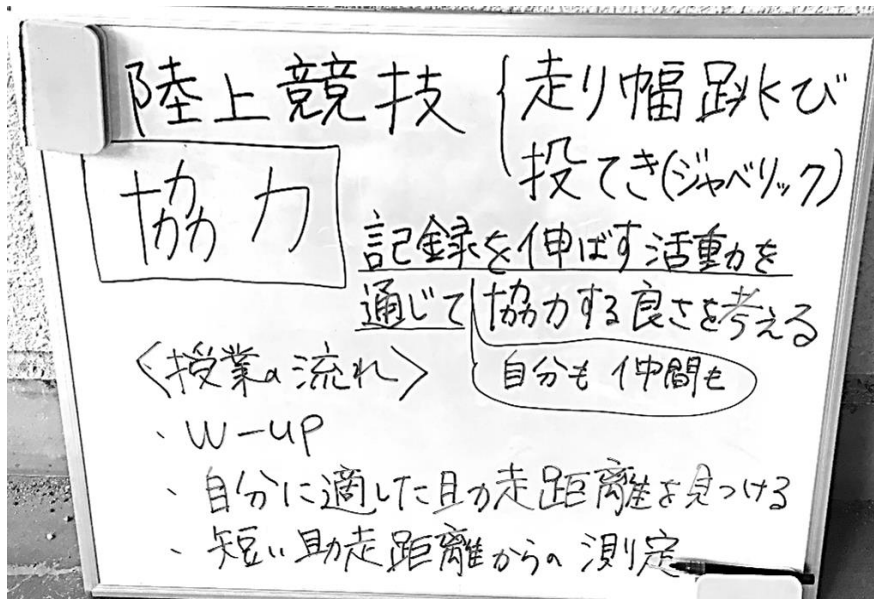 陸上競技 { 走り幅跳び
投てき(ジャベリック)
協力
記録を伸ばす活動を
通じて 協力する良さを考える
自分も仲間も
〈授業の流れ〉
・W-UP
・自分に適した助走距離を見つける
・短い助走距離からの測定